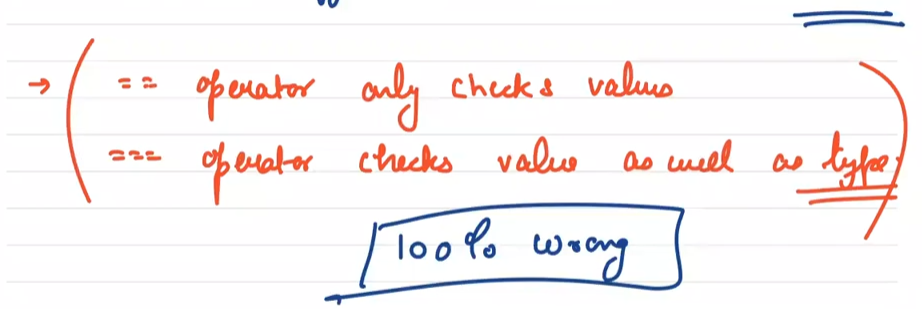 → ( == operator only checks values
=== operator checks value as well as type. )
100% wrong